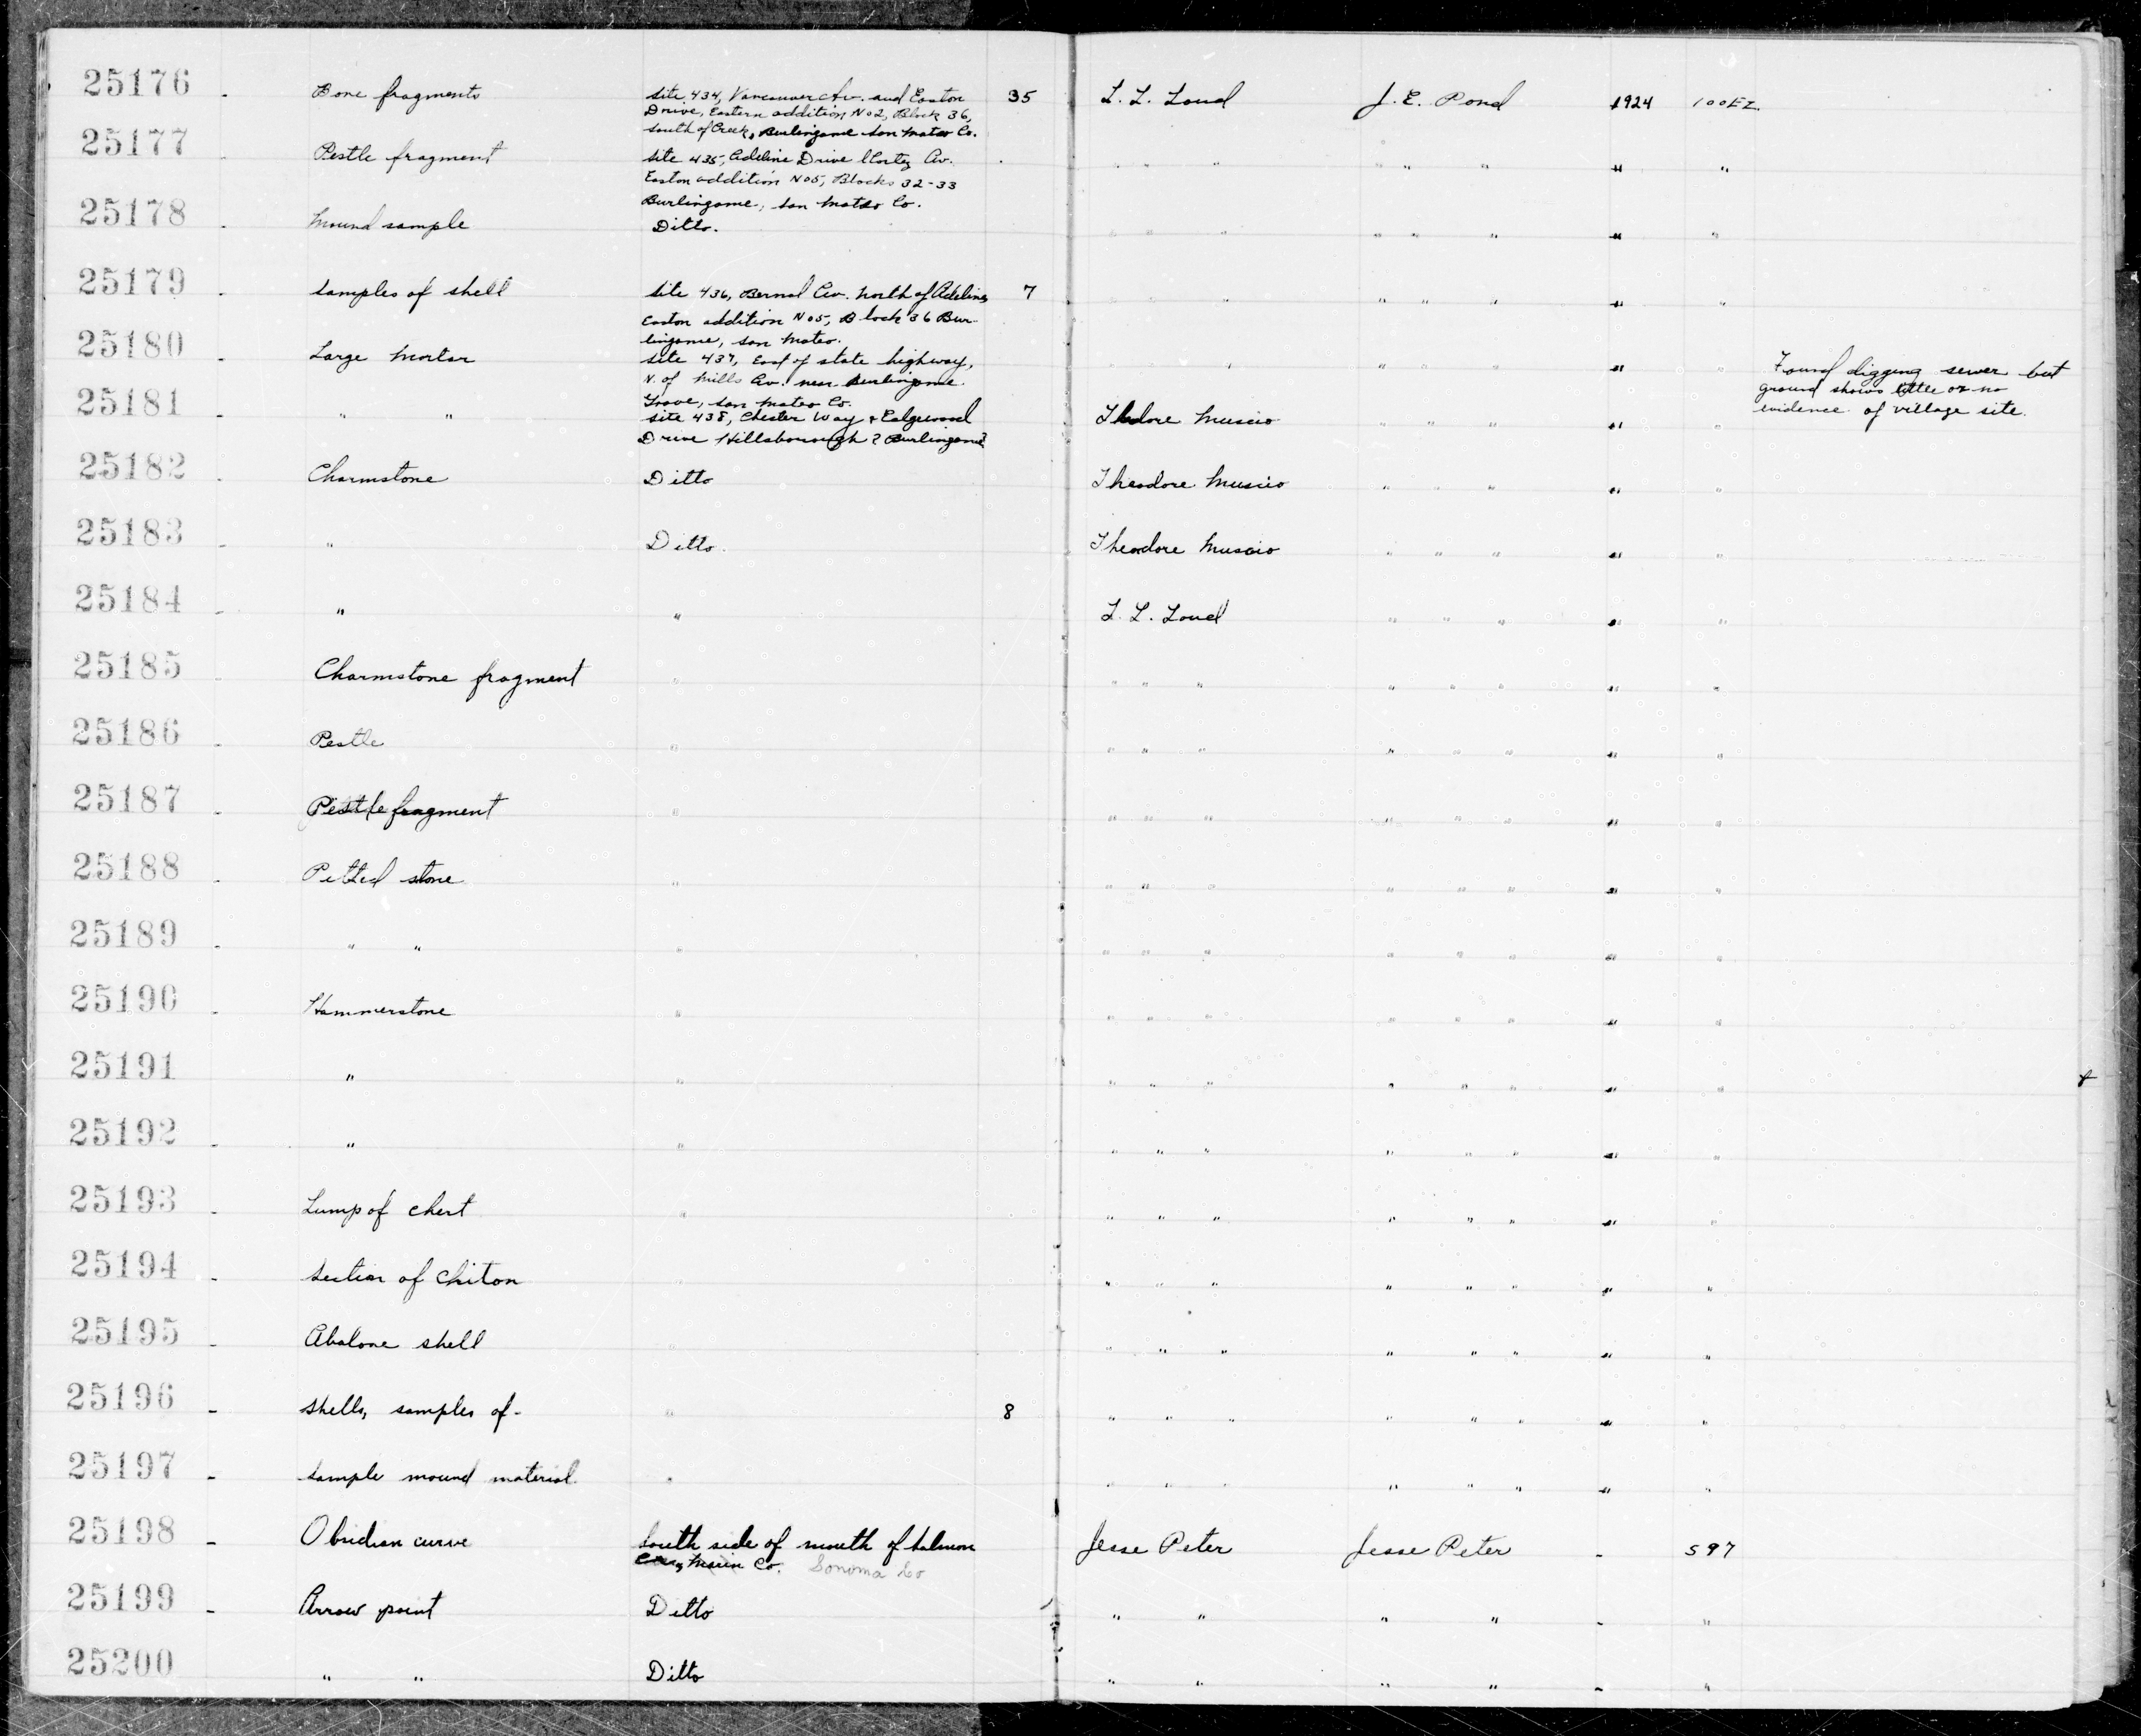 25176 - Bone fragments site 434, Vancouver Av. and Easton 35 L. L. Loud J. E. Pond 1924 100EZ.
Drive, Eastern addition No 2, Block 36,
south of Creek, Burlingame San Mateo Co.
25177 - Pestle fragment site 435, Adeline Drive Cortez Av. " " " " " " " "
Easton addition No 5, Blocks 32-33
Burlingame, San Mateo Co.
25178 - Mound sample Ditto. " " " " " " " "
25179 - Samples of shell site 436, Bernal Av. North of Adeline 7 " " " " " "
Easton addition No 5, Block 36 Bur-
lingame, San Mateo.
25180 - Large Mortar site 437, East of state highway, " " " " " " " Found digging sewer but
N. of Mills Av. near Burlingame ground shows little or no
Grove, San Mateo Co. evidence of village site.
25181 - " " site 438, Chester Way & Edgewood Thedore Muscio " " " " "
Drive Hillsborough ? Burlingame?
25182 - Charmstone Ditto Theodore Muscio " " " " "
25183 - " Ditto. Theodore Muscio " " " " "
25184 - " " L. L. Loud " " " " "
25185 - Charmstone fragment " " " " " " " " "
25186 - Pestle " " " " " " " " "
25187 - Pestle fragment " " " " " " " " "
25188 - Pitted stone " " " " " " " " "
25189 - " " " " " " " " " " "
25190 - Hammerstone " " " " " " " " "
25191 - " " " " " " " " " "
25192 - " " " " " " " " " "
25193 - Lump of chert " " " " " " " " "
25194 - Section of Chiton " " " " " " " " "
25195 - Abalone shell " " " " " " " " "
25196 - Shells, samples of- " 8 " " " " " " " "
25197 - Sample mound material " " " " " " " " "
25198 - Obsidian curve South side of mouth of Salmon Jesse Peter Jesse Peter - 597
Marin Co. Sonoma Co
25199 - Arrow point Ditto " " " " - "
25200 - " " Ditto " " " " - "